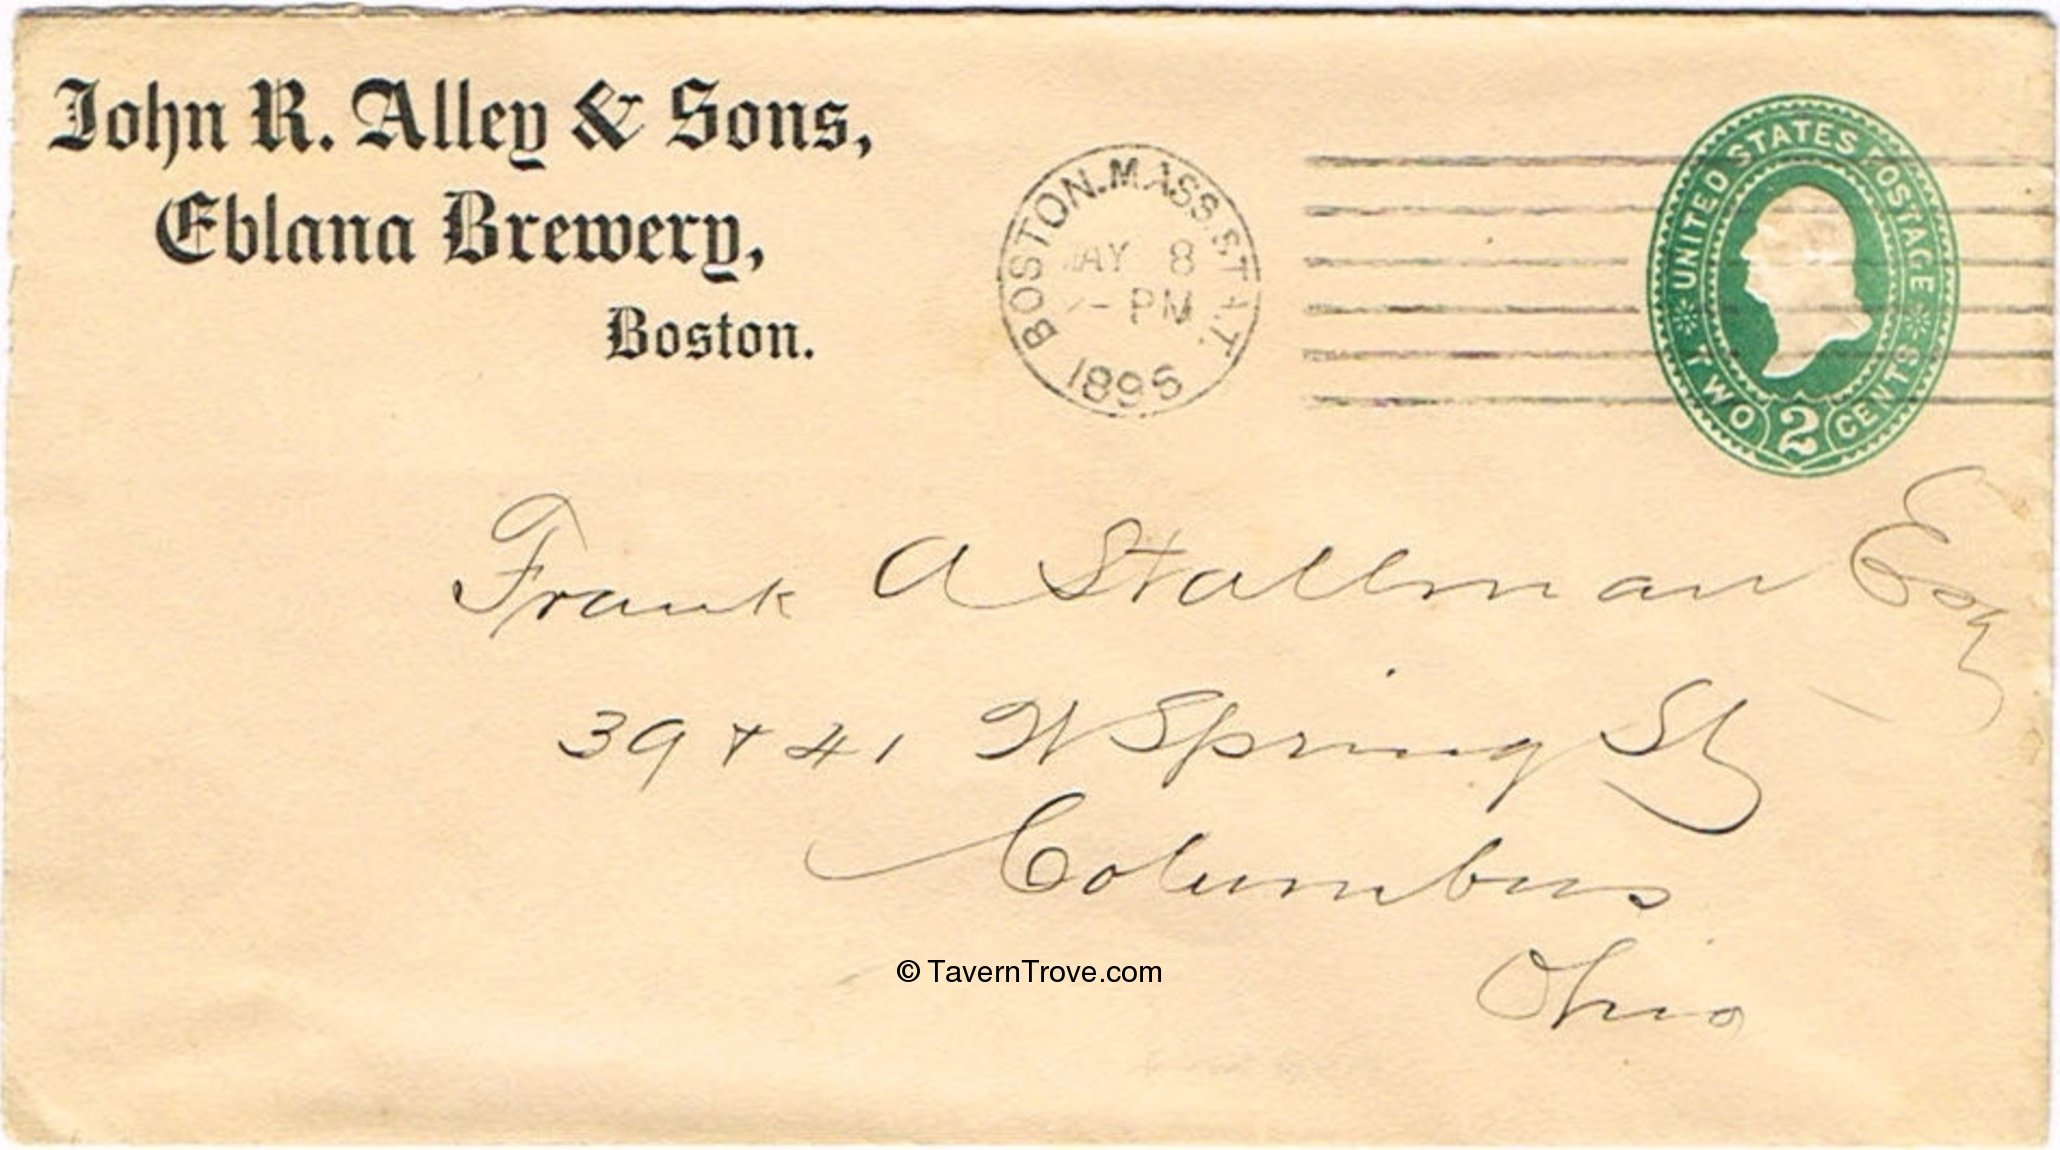 John R. Alley & Sons,
Eblana Brewery,
Boston.
BOSTON. MASS. STA. T.
MAY 8
PM
1895
UNITED STATES POSTAGE
TWO 2 CENTS
Frank A Stallman Esq
39 & 41 W Spring St
Columbus
Ohio
© TavernTrove.com